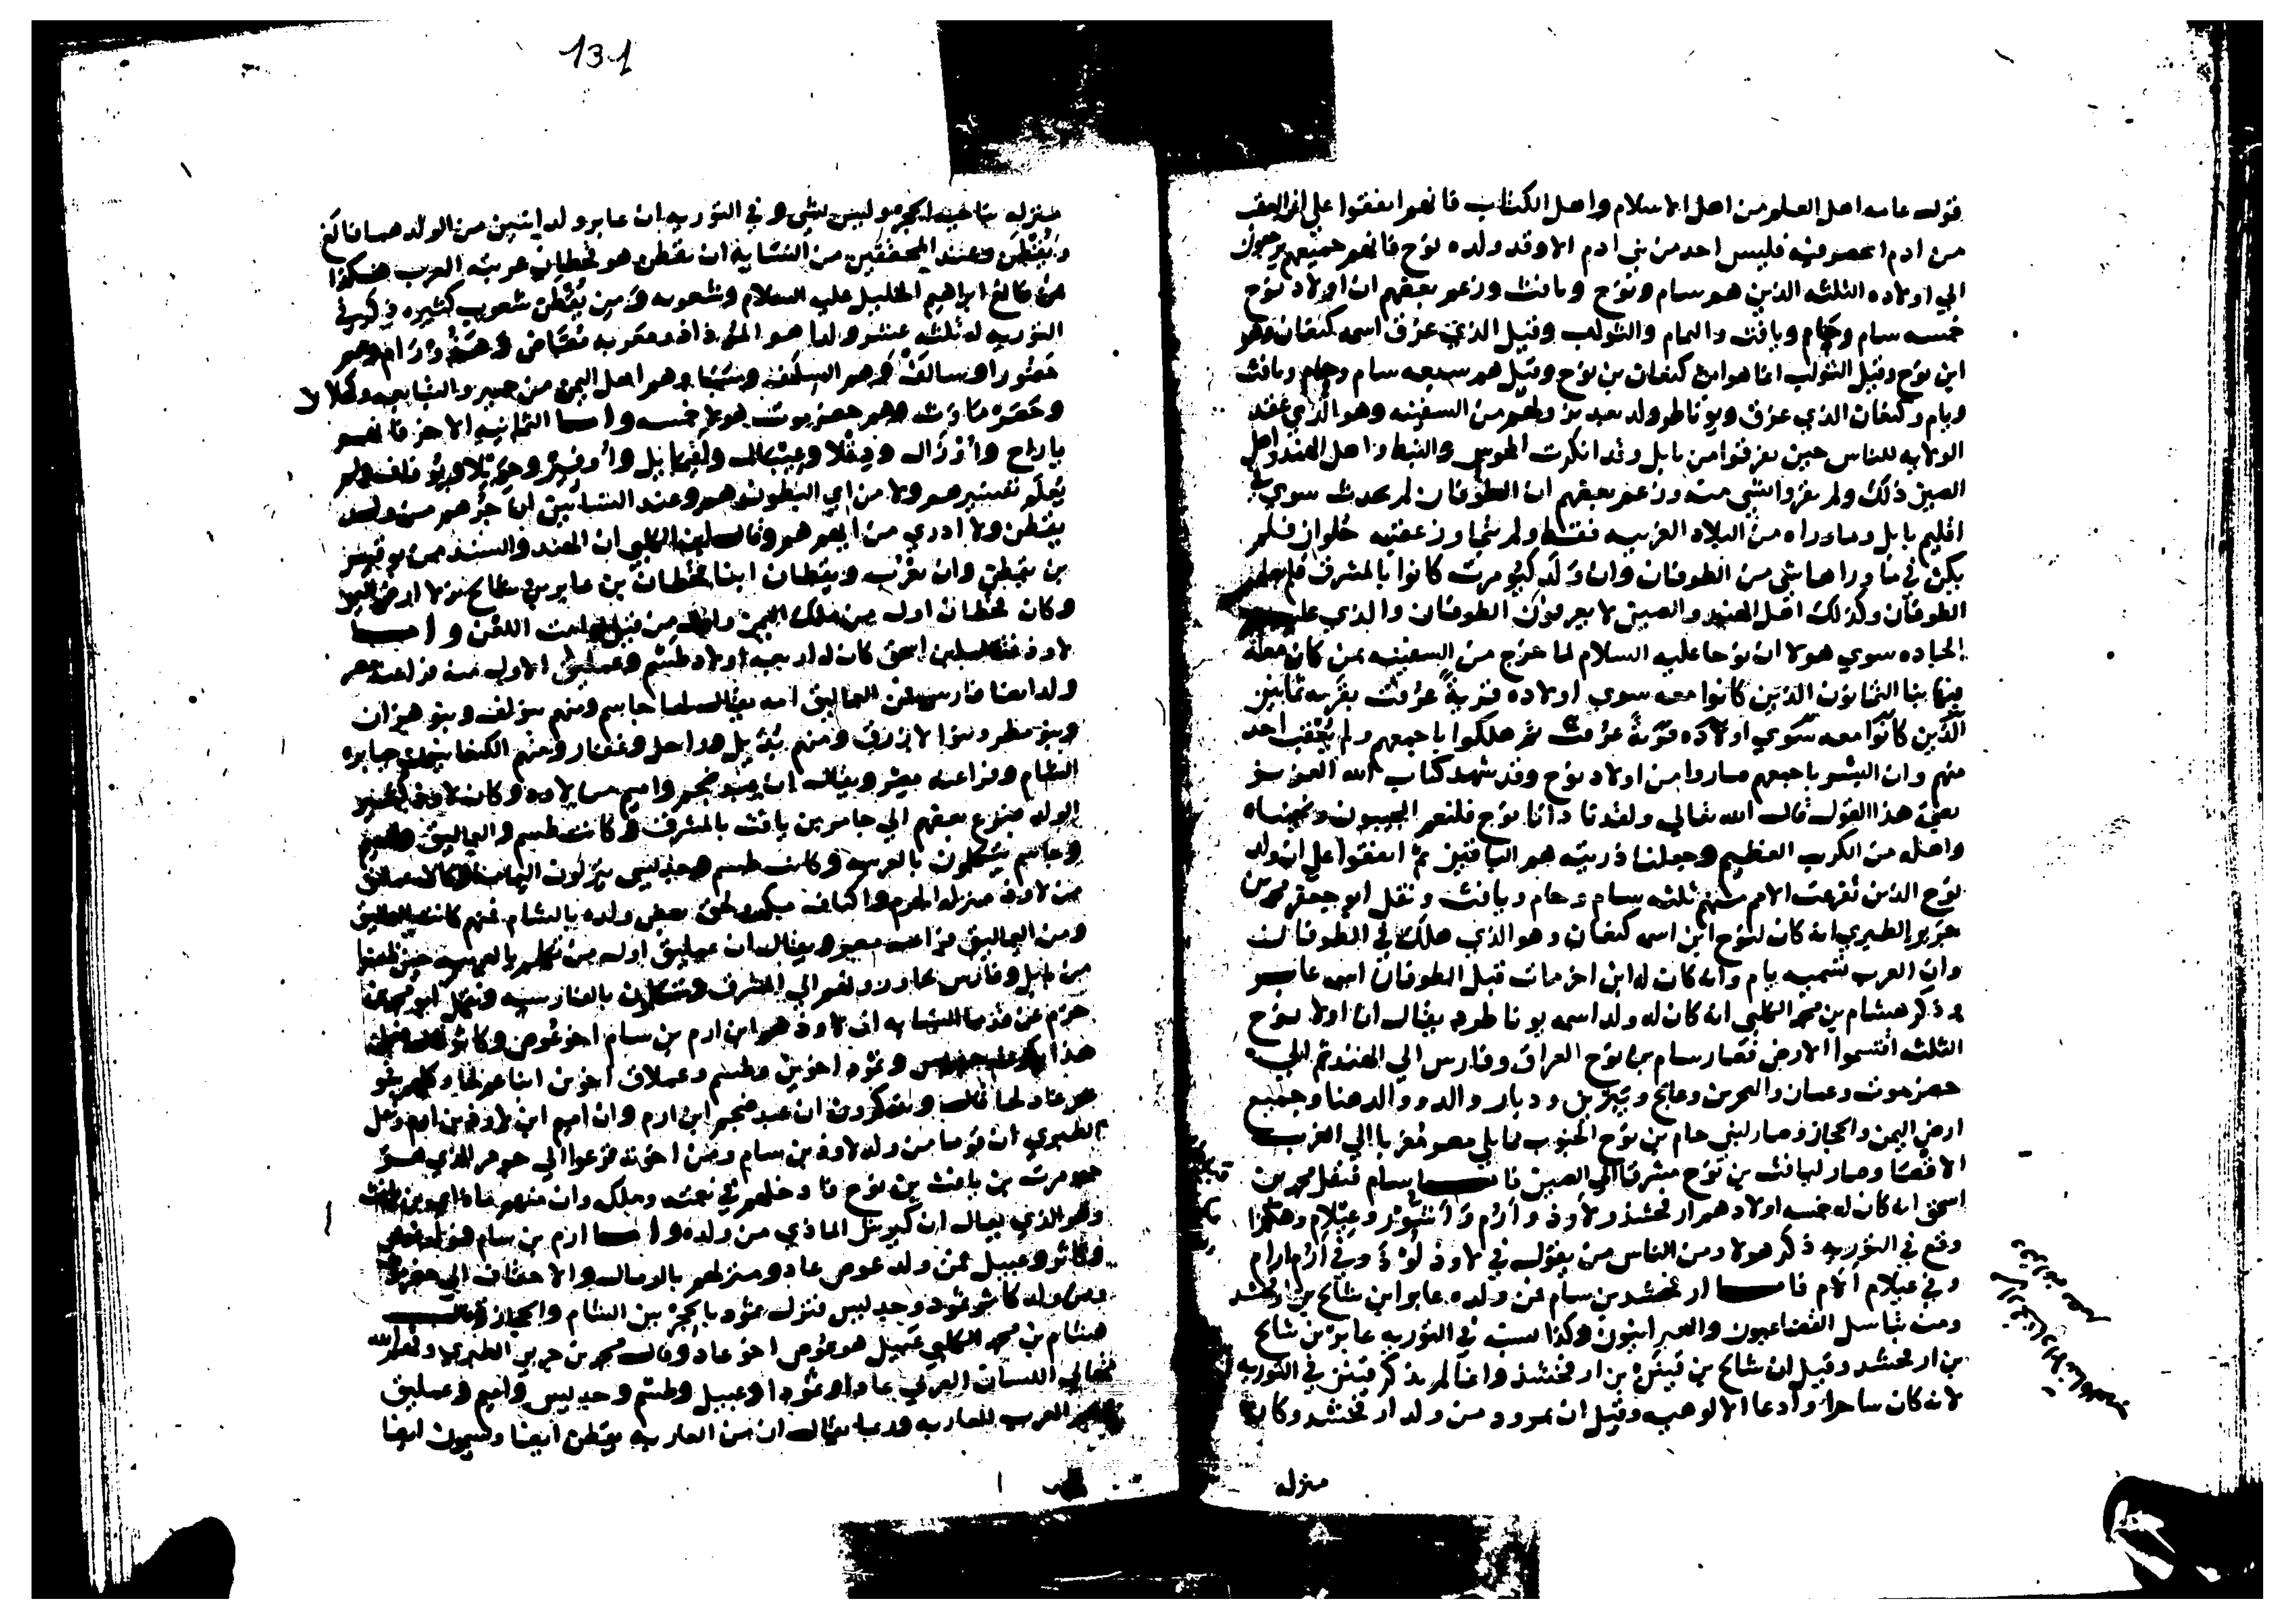 قول عامه اهل العلم من اهل الاسلام واهل الكتاب فانهم اتفقوا علي ان العقب
من ادم انحصر فيه فليس احد من بني ادم الا وقد ولده نوح فانهم جميعهم يرجعون
الي اولاده الثلثه الذين هم سام ونوح ويافث وزعم بعضهم ان اولاد نوح
خمسه سام وحام ويافث واليام والتولب وقيل الذي غرق اسمه كنعان وهو
ابن نوح وقيل التولب انما هو ابن كنعان بن نوح وقيل هم سبعه سام وحام ويافث
ويام وكنعان الذي غرق ويوناطر ولد بعد نزولهم من السفينه وهو الذي عقد
الولايه للناس حين تفرقوا من بابل وقد انكرت المجوس والنبط واهل الهند واهل
الصين ذلك ولم يقروا بشي منه وزعم بعضهم ان الطوفان لم يحدث سوي في
اقليم بابل وما وراه من البلاد الغربيه فقط ولم يتجاوز عقبه حلوان فلم
يكن في ما وراها شي من الطوفان وان ولد كيومرت كانوا بالمشرق فلم يصلهم
الطوفان وكذلك اهل الهند والصين لا يعرفون الطوفان والذي عليه
سوي هولا ان نوحا عليه السلام لما خرج من السفينه بمن كان معه
بنا الثمانون الذين كانوا معه سوي اولاده قريةً عرفت بقريه ثمانين
الذين كانوا معه سوي اولاده قريةً عرفت ثم هلكوا باجمعهم ولم يعقب احد
منهم وان البشر باجمعهم صاروا من اولاد نوح وقد شهد كتاب الله العزيز
هذا القول قال الله تعالي ولقد نادانا نوح فلنعم المجيبون ونجيناه
واهله من الكرب العظيم وجعلنا ذريته هم الباقين ثم اتفقوا علي ان ولد
نوح الذين تفرعت الامم منهم ثلثه سام وحام ويافث ونقل ابو جعفر محمد بن
جرير الطبري انه كان لنوح ابن اسمه كنعان وهو الذي هلك في الطوفان
وان العرب تسميه يام وانه كان له ابن اخر مات قبل الطوفان اسمه عابر
وذكر هشام بن محمد الكلبي انه كان له ولد اسمه يوناطر ويقال ان اولاد نوح
الثلثه اقتسموا الارض فصار سام بن نوح العراق وفارس الي الهند ثم الي
حضرموت وعمان والبحرين وعالج ويبرين ودبار والدو والدهنا وجميع
ارض اليمن والحجاز وصار لبني حام بن نوح الجنوب مما يلي مصر مغربا الي الغرب
الاقصا وصار ليافث بن نوح مشرقا الي الصين فاما سام فنقل محمد بن
اسحق انه كان له خمسه اولاد هم ارفخشذ ولاوذ وارم واشوذ وعيلام وهكذا
وقع في التوريه ذكر هولا ومن الناس من يقول في لاوذ لوذ وفي ارم ارام
وفي عيلام الام فاما ارفخشد بن سام فمن ولده عابر ابن شالح بن ارفخشد
ومنه تناسل القضاعيون والعبرانيون وكذا نسبته في التوريه عابر ابن شالح
بن ارفخشد وقيل ان شالح بن قينن بن ارفخشد وانما لم يذكر قينن في التوريه
لانه كان ساحرا وادعا الالوهيه وقيل ان نمرود من ولد ارفخشد وكان
منزله
131
منزله بناحيه الحجر وليس بشي وفي التوريه ان عابر ولد اثنين من الولد هما فالغ
ويقطن وعند المحققين من النسابه ان يقطن هو قحطان عربته العرب هكذا
فمن فالغ ابراهيم الخليل عليه السلام وشعوبه ومن يقطن شعوب كثيره ذكر في
التوريه له ثلثه عشر ولدا هم المرذاذ ومعربه مضاض وهم جرهم وارام وهم
حضورا وسالف وهم السلف وسبا وهم اهل اليمن من حمير والتبابعه وكهلان
وحضرماوت وهم حضرموت هولا خمسه واما الثمانيه الاخر فانهم
ياراح واوزال ودقلا وعيثال وافيمايل واوفير وحويلا ويوفاف ولم
يعلم تفسيرهم ولا من اي البطون هم وعند النسابين ان جرهم من ولد
يقطن ولا ادري من ايهم هم وقال ابن الكلبي ان الهند والسند من نوفير
بن يقطن وان يعرب ويقطان ابنا قحطان بن عابر بن شالح نزلا ارض اليمن
وكان قحطان اول من ملك اليمن واول من قيل له ابيت اللعن واما
لاوذ فقال ابن اسحق كان له اربعه اولاد طسم وعمليق
ولد ايضا فارس فمن العماليق امه يقال لها جاسم ومنهم بنو لف وبنو هزان
وبنو مطر وبنوا الازرق ومنهم بديل وراحل وغفار ومنهم الكنعانيون جبابره
الشام وفراعنه مصر ويقال ان عبد ضخم واميم من لاوذ وكان لاوذ
بعضهم الي جامر بن يافث بالمشرق وكانت طسم والعماليق واميم
وجاسم يتكلمون بالعربيه وكانت طسم وجديس ينزلون اليمامه
من لاوذ منزله الحرم واكناف مكه ولحق بعض ولده بالشام فمنهم كانت العماليق
ومن العماليق فراعنه مصر ويقال ان عمليق اول من تكلم بالعربيه حين ظعنوا
من بابل وفارس يجاورونهم الي المشرق ويتكلمون بالفارسيه ونقل ابو محمد بن
حزم عن قدما النسابه ان لاوذ هو ابن ارم بن سام اخو عوص وكاثر
هذا يكون جديس وثمود اخوين وطسم وعملاق اخوين ابنا عم لها وكلهم بنو
عم عاد لحا قال ويذكرون ان عبد ضخم ابن ارم وان اميم ابن لاوذ بن ارم ونقل
الطبري ان قوما من ولد لاوذ بن سام ومن اخوته نزعوا الي جومر الذي هو
جومرت بن يافث بن نوح فادخلهم في نعمته وملكه وان منهم
وهو الذي يقال ان كيرش الماذي من ولده واما ارم بن سام فمنزله
وكاثر وعبيل فمن ولد عوص عاد ومنزلهم بالرمال والاحقاف الي حضرموت
ومن ولد كاثر ثمود وجديس فنزل ثمود بالحجر بين الشام والحجاز وقال
هشام بن محمد الكلبي عبيل هو عوص اخو عاد وقال محمد بن جرير الطبري وفهم الله
تعالي اللسان العربي عادا وثمودا وعبيل وطسم وجديس واميم وعمليق
العرب العاربه وربما يقال ان من العاربه يقطن ايضا ويسمون ايضا